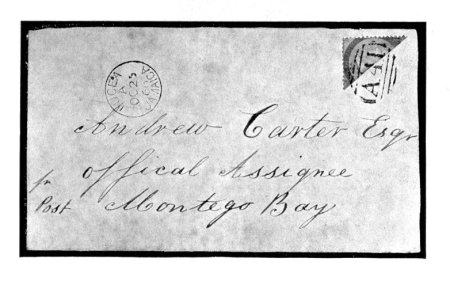 LUCEA
A
OC 25
JAMAICA
A41
Andrew Carter Esqr
offical Assignee
pr
Post
Montego Bay